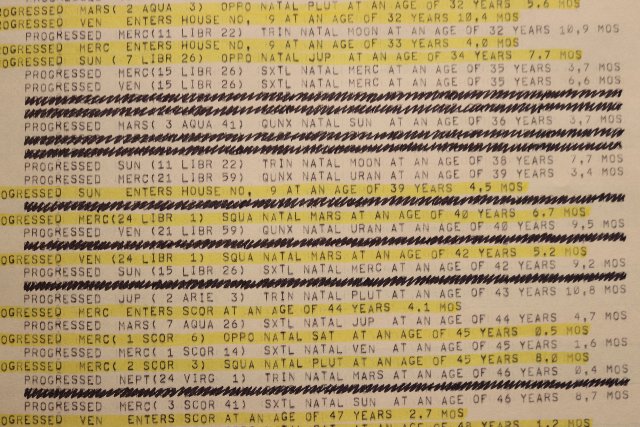 OGRESSED MARS( 2 AQUA 3) OPPO NATAL PLUT AT AN AGE OF 32 YEARS 5.6 MOS
OGRESSED VEN ENTERS HOUSE NO, 9 AT AN AGE OF 32 YEARS 10,4 MOS
PROGRESSED MERC(11 LIBR 22) TRIN NATAL MOON AT AN AGE OF 32 YEARS 10,9 MOS
OGRESSED MERC ENTERS HOUSE NO, 9 AT AN AGE OF 33 YEARS 4,0 MOS
OGRESSED SUN ( 7 LIBR 26) OPPO NATAL JUP AT AN AGE OF 34 YEARS 7.7 MOS
PROGRESSED MERC(15 LIBR 26) SXTL NATAL MERC AT AN AGE OF 35 YEARS 3,7 MOS
PROGRESSED VEN (15 LIBR 26) SXTL NATAL MERC AT AN AGE OF 35 YEARS 6,6 MOS
PROGRESSED MARS( 3 AQUA 41) QUNX NATAL SUN AT AN AGE OF 36 YEARS 3,7 MOS
PROGRESSED SUN (11 LIBR 22) TRIN NATAL MOON AT AN AGE OF 38 YEARS 7,7 MOS
PROGRESSED MERC(21 LIBR 59) QUNX NATAL URAN AT AN AGE OF 39 YEARS 3,4 MOS
OGRESSED SUN ENTERS HOUSE NO, 9 AT AN AGE OF 39 YEARS 4,5 MOS
OGRESSED MERC(24 LIBR 1) SQUA NATAL MARS AT AN AGE OF 40 YEARS 6.7 MOS
PROGRESSED VEN (21 LIBR 59) QUNX NATAL URAN AT AN AGE OF 40 YEARS 9,5 MOS
OGRESSED VEN (24 LIBR 1) SQUA NATAL MARS AT AN AGE OF 42 YEARS 5.2 MOS
PROGRESSED SUN (15 LIBR 26) SXTL NATAL MERC AT AN AGE OF 42 YEARS 9,2 MOS
PROGRESSED JUP ( 2 ARIE 3) TRIN NATAL PLUT AT AN AGE OF 43 YEARS 10,8 MOS
OGRESSED MERC ENTERS SCOR AT AN AGE OF 44 YEARS 4.1 MOS
PROGRESSED MARS( 7 AQUA 26) SXTL NATAL JUP AT AN AGE OF 44 YEARS 4,7 MOS
OGRESSED MERC( 1 SCOR 6) OPPO NATAL SAT AT AN AGE OF 45 YEARS 0.5 MOS
PROGRESSED MERC( 1 SCOR 14) SXTL NATAL VEN AT AN AGE OF 45 YEARS 1,6 MOS
OGRESSED MERC( 2 SCOR 3) SQUA NATAL PLUT AT AN AGE OF 45 YEARS 8,0 MOS
PROGRESSED NEPT(24 VIRG 1) TRIN NATAL MARS AT AN AGE OF 46 YEARS 0,4 MOS
PROGRESSED MERC( 3 SCOR 41) SXTL NATAL SUN AT AN AGE OF 46 YEARS 8,7 MOS
OGRESSED VEN ENTERS SCOR AT AN AGE OF 47 YEARS 2.7 MOS
NATAL SAT AT AN AGE OF 48 YEARS 1.2 MOS